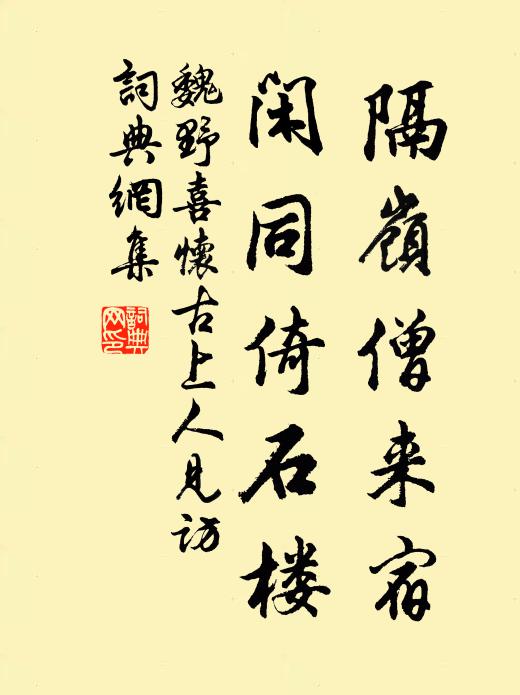 隔嶺僧来宿
闲同倚石楼
魏野喜懷古上人見訪
詞典網集
詞典
网印